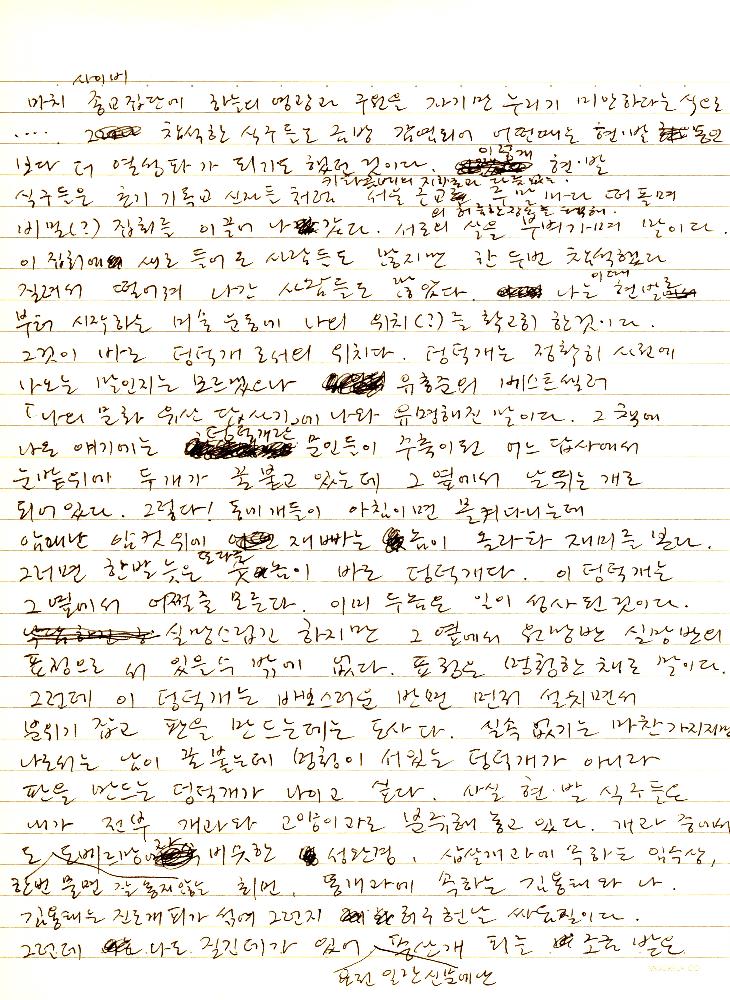 사이버
마치 종교집단에 하늘의 영광과 구원을 자기만 누리기 미안하다는 식으로
.... 참석한 식구들도 금방 감염되어 어떤때는 현·발
보다 더 열성파가 되기도 했던 것이다. 이렇게 현·발
식구들은 초기 기독교 신자들처럼 서울 근교로 주말마다 떠돌며
비밀(?) 집회를 이끌어 나갔다. 서로의 살을 부벼가며 말이다.
이 집회에 새로 들어온 사람들도 많지만 한두번 참석했다
질려서 떨어져 나간 사람들도 많았다. 나는 이때 현발
부터 시작하는 미술운동에 나의 위치(?)를 확고히 한것이다.
그것이 바로 덩덕개로서의 위치다. 덩덕개는 정확히 사전에
나오는 말인지는 모르겠으나 유홍준의 베스트셀러
「나의 문화유산 답사기」에 나와 유명해진 말이다. 그 책에
나온 얘기에는 덩덕개란 문인들이 주축이된 어느 답사에서
눈밭위에 두 개가 꼴붙고 있는데 그 옆에서 날뛰는 개로
되어있다. 그렇다! 동네개들이 아침이면 몰켜다니는데
암내난 암컷위에 재빠른 놈이 올라타 재미를 본다.
그러면 한발 늦은 또다른 숫놈이 바로 덩덕개다. 이 덩덕개는
그 옆에서 어쩔줄 모른다. 이미 두놈은 일이 성사된것이다.
실망스럽긴 하지만 그 옆에서 원망반 실망반의
표정으로 서 있을수 밖에 없다. 표정은 멍청한 채로 말이다.
그런데 이 덩덕개는 바보스러운 반면 먼저 설치면서
분위기 잡고 판을 만드는데는 도사다. 실속 없기는 마찬가지지만
나로서는 남이 꼴붙는데 멍청이 서있는 덩덕개가 아니라
판을 만드는 덩덕개가 나이고 싶다. 사실 현·발 식구들은
내가 전부 개과와 고양이과로 분류해 놓고 있다. 개과 중에서
도 도베르만 과 비슷한 성완경, 삽살개과에 속하는 임옥상,
한번 물면 잘 놓지않는 최민, 똥개과에 속하는 김용태와 나.
김용태는 진도개 피가 섞여 그런지 허구헌날 싸움질이다.
그런데 나도 질긴데가 있어 풍산개 피는 조금 받은